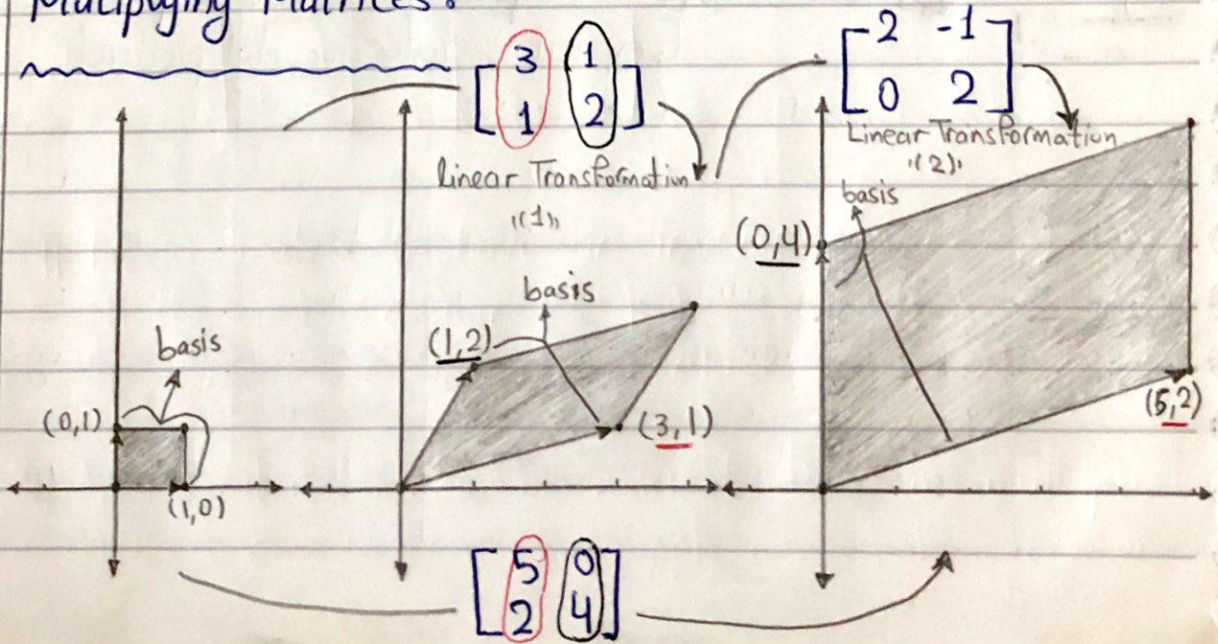 Multiplying Matrices:
[3 1
1 2]
Linear Transformation
"(1)"
[2 -1
0 2]
Linear Transformation
"(2)"
basis
(0,1)
(1,0)
basis
(1,2)
(3,1)
basis
(0,4)
(5,2)
[5 0
2 4]